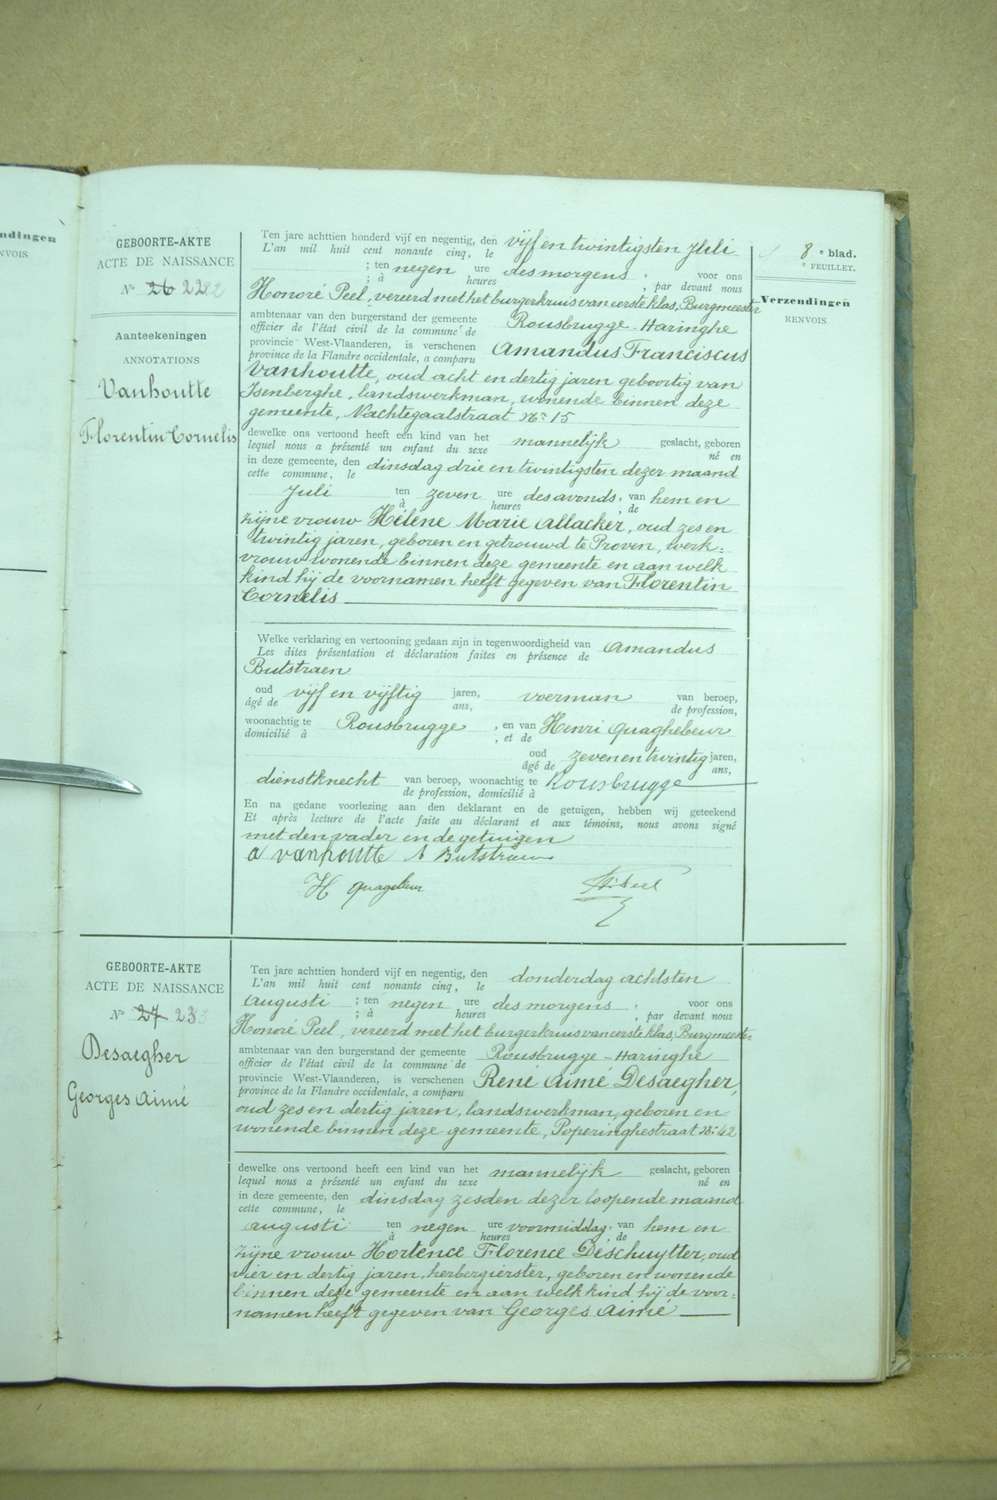 ndingen
NVOIS.
8e blad.
e FEUILLET.
Verzendingen
RENVOIS.
GEBOORTE-AKTE
ACTE DE NAISSANCE
No 26 22
Aanteekeningen
ANNOTATIONS
Vanhoutte
Florentin Cornelis
Ten jare achttien honderd vijf en negentig, den vijf en twintigsten Juli
L'an mil huit cent nonante cinq, le
; ten negen ure des morgens, voor ons
; à heures , par devant nous
Honoré Peel, vereerd met het burgerkruis van eerste klas, Burgmeester
ambtenaar van den burgerstand der gemeente Rousbrugge-Haringhe
officier de l'état civil de la commune de
provincie West-Vlaanderen, is verschenen Amandus Franciscus
province de la Flandre occidentale, a comparu
Vanhoutte, oud acht en dertig jaren geboortig van
Isenberghe, landswerkman, wonende binnen deze
gemeente, Nachtegaalstraat No 15
dewelke ons vertoond heeft een kind van het mannelijk geslacht, geboren
lequel nous a présenté un enfant du sexe né en
in deze gemeente, den dinsdag drie en twintigsten dezer maand
cette commune, le
Juli ten zeven ure des avonds, van hem en
à heures de
zijne vrouw Hélène Marie Allacker, oud zes en
twintig jaren, geboren en getrouwd te Proven, werk-
vrouw wonende binnen deze gemeente en aan welk
kind hij de voornamen heeft gegeven van Florentin
Cornelis
Welke verklaring en vertooning gedaan zijn in tegenwoordigheid van Amandus
Les dites présentation et déclaration faites en présence de
Butstraen
oud vijf en vijftig jaren, voerman van beroep,
âgé de ans, de profession,
woonachtig te Rousbrugge, en van Henri Quaghebeur
domicilié à , et de
oud zeven en twintig jaren,
âgé de ans,
dienstknecht van beroep, woonachtig te Rousbrugge
de profession, domicilié à
En na gedane voorlezing aan den deklarant en de getuigen, hebben wij geteekend
Et après lecture de l'acte faite au déclarant et aux témoins, nous avons signé
met den vader en de getuigen
a vanhoutte A Butstraen
H quagebeur
GEBOORTE-AKTE
ACTE DE NAISSANCE
No 27 23
Desaegher
Georges Aimé
Ten jare achttien honderd vijf en negentig, den donderdag achtsten
L'an mil huit cent nonante cinq, le
Augusti ; ten negen ure des morgens, voor ons
; à heures , par devant nous
Honoré Peel, vereerd met het burgerkruis van eerste klas, Burgmeester
ambtenaar van den burgerstand der gemeente Rousbrugge-Haringhe
officier de l'état civil de la commune de
provincie West-Vlaanderen, is verschenen René Aimé Desaegher,
province de la Flandre occidentale, a comparu
oud zes en dertig jaren, landswerkman, geboren en
wonende binnen deze gemeente, Poperinghestraat No 42
dewelke ons vertoond heeft een kind van het mannelijk geslacht, geboren
lequel nous a présenté un enfant du sexe né en
in deze gemeente, den dinsdag zesden dezer loopende maand
cette commune, le
augusti ten negen ure voormiddag, van hem en
à heures de
zijne vrouw Hortence Florence Deschuytter, oud
vier en dertig jaren, herbergierster, geboren en wonende
binnen deze gemeente en aan welk kind hij de voor-
namen heeft gegeven van Georges Aimé